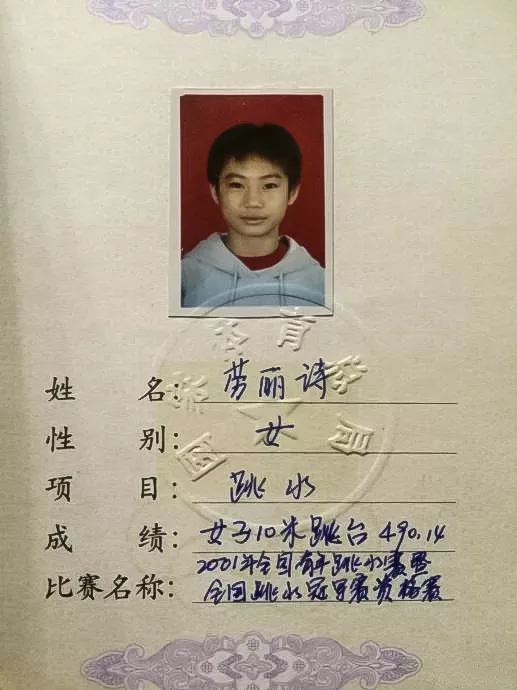 姓名：劳丽诗
性别：女
项目：跳水
成绩：女子10米跳台 490.14
2001年全国青年跳水赛暨
比赛名称：全国跳水冠军赛资格赛